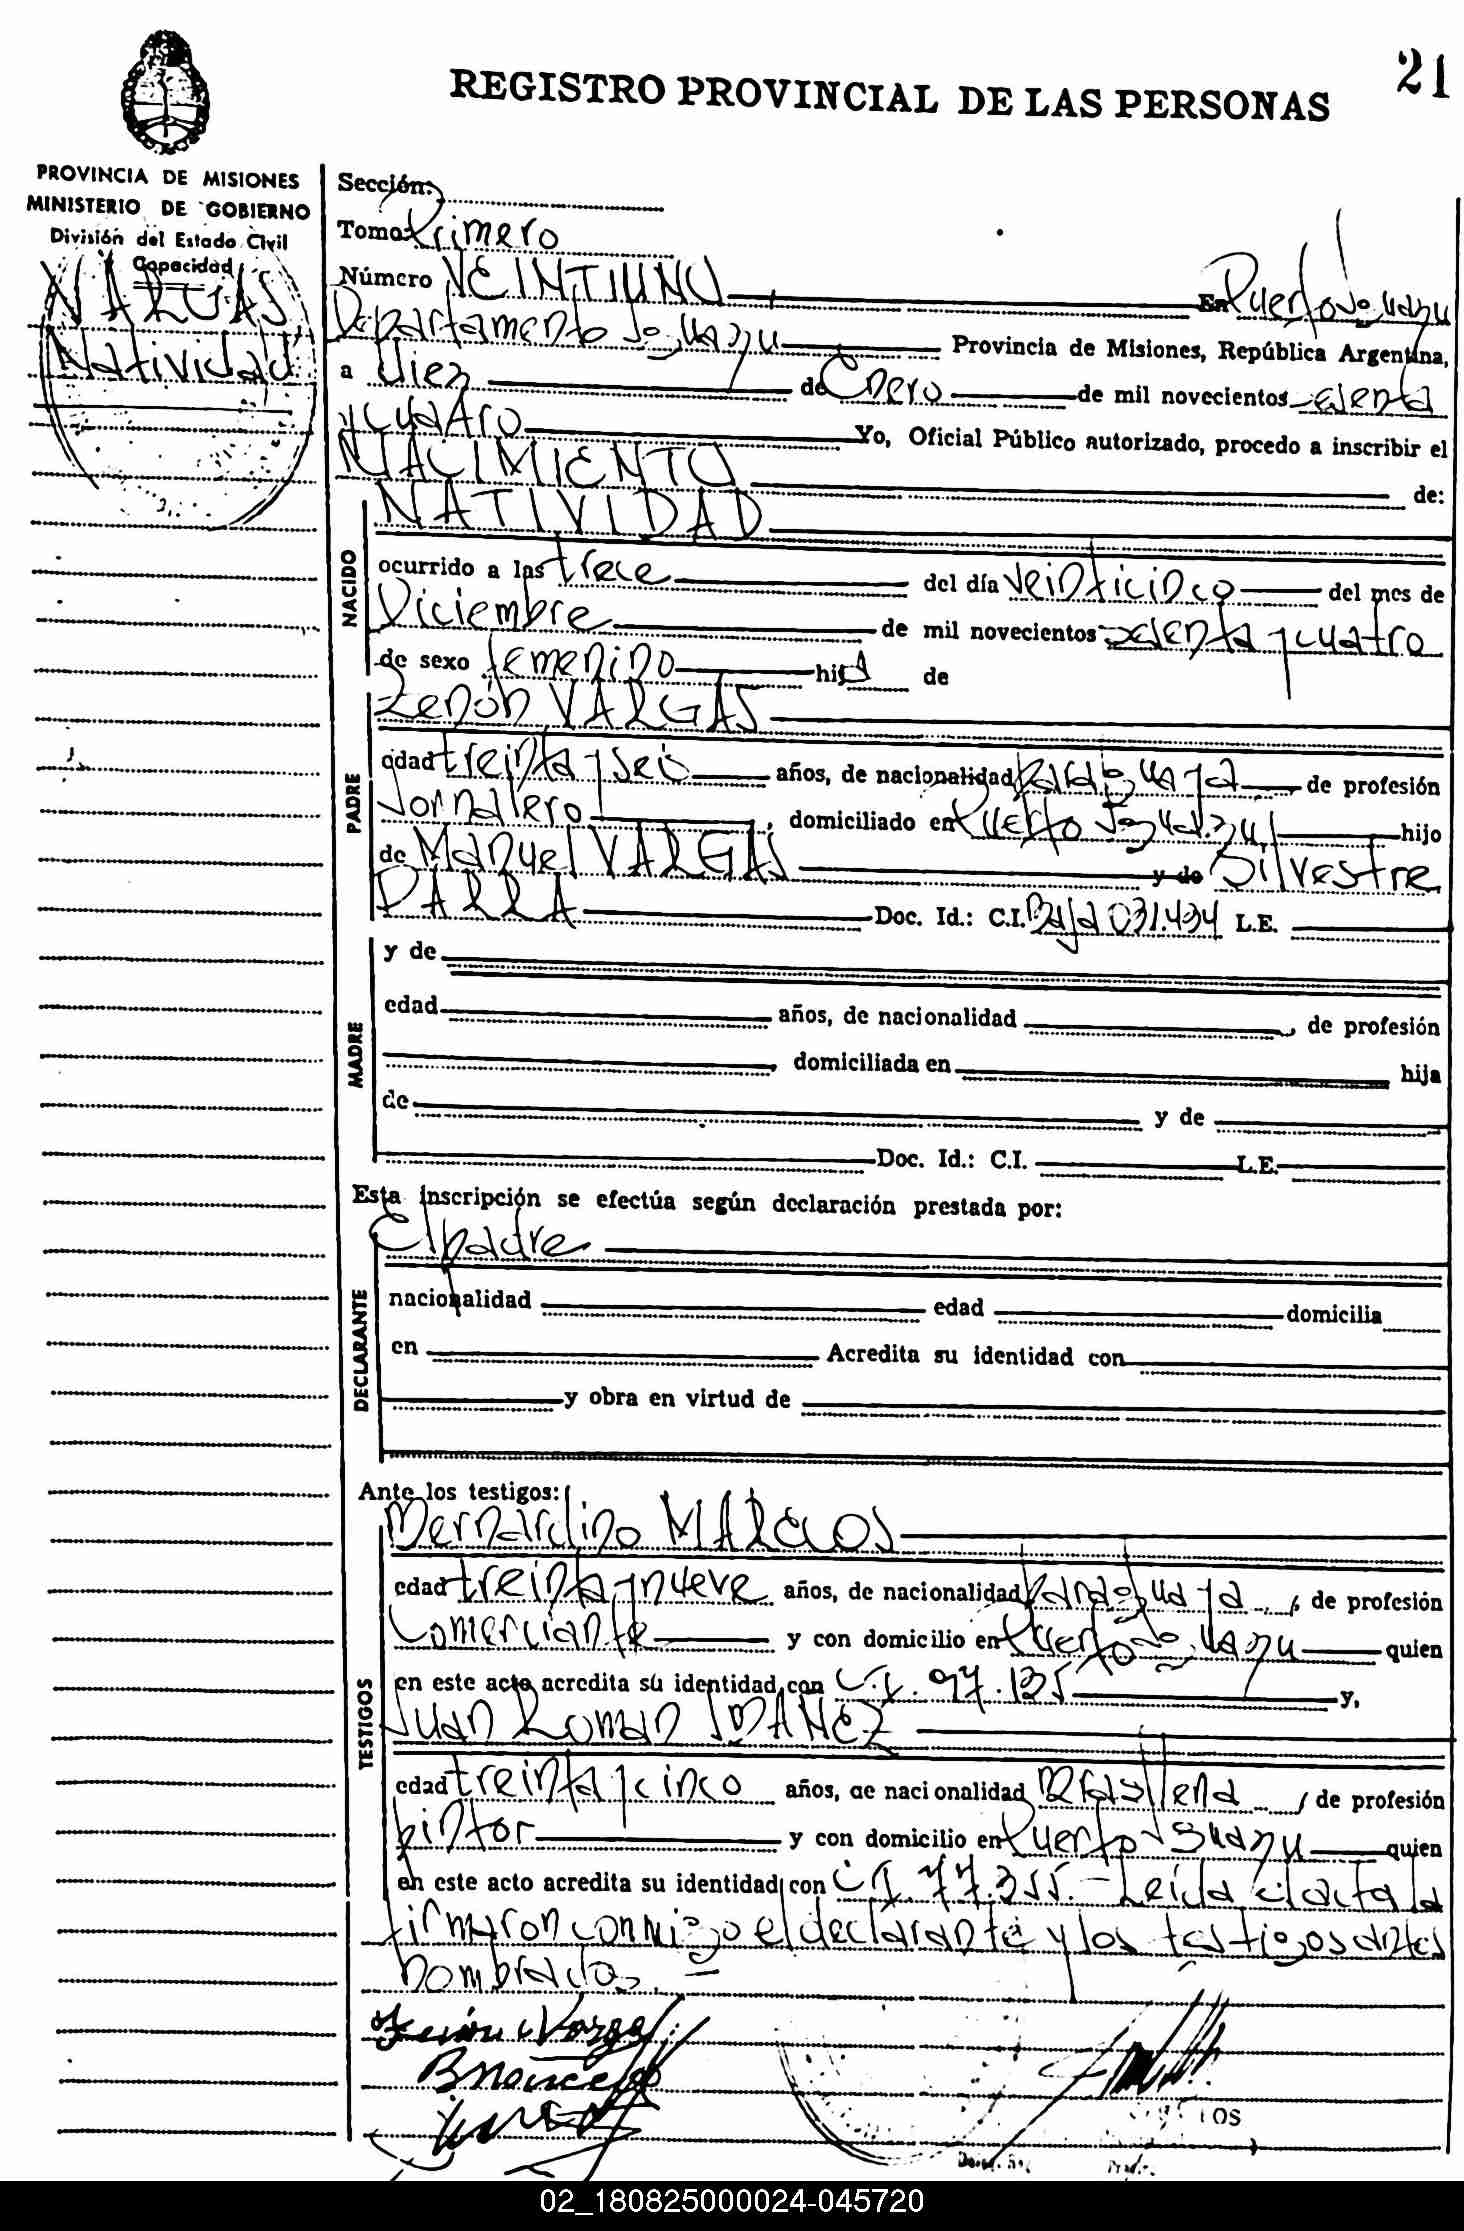 21
REGISTRO PROVINCIAL DE LAS PERSONAS
PROVINCIA DE MISIONES
MINISTERIO DE GOBIERNO
División del Estado Civil
Capacidad
VARGAS
Natividad
Sección:
Tomo Primero
Número VEINTIUNO En Puerto Iguazu
Departamento Iguazu Provincia de Misiones, República Argentina,
a Diez de Enero de mil novecientos setenta
y cuatro Yo, Oficial Público autorizado, procedo a inscribir el
NACIMIENTO de:
NACIDO
NATIVIDAD
ocurrido a las trece del día veinticinco del mes de
Diciembre de mil novecientos setenta y cuatro
de sexo femenino hija de
PADRE
Zenón VARGAS
edad treinta y seis años, de nacionalidad Paraguaya de profesión
Jornalero, domiciliado en Puerto Iguazu hijo
de Manuel VARGAS y de Silvestre
PARRA Doc. Id.: C.I. Baja 031.434 L.E.
MADRE
y de
edad años, de nacionalidad , de profesión
, domiciliada en hija
de y de
Doc. Id.: C.I. L.E.
Esta inscripción se efectúa según declaración prestada por:
DECLARANTE
El padre
nacionalidad edad domicilia
en Acredita su identidad con
y obra en virtud de
Ante los testigos:
TESTIGOS
Bernardino
edad treinta y nueve años, de nacionalidad Paraguaya, de profesión
Comerciante y con domicilio en Puerto Iguazu quien
en este acto acredita su identidad con C.I. 97.135 y,
Juan Roman IBAÑEZ
edad treinta y cinco años, de nacionalidad Brasilena, de profesión
pintor y con domicilio en Puerto Iguazu quien
en este acto acredita su identidad con C.I. 77.355.- Leida el acta la
firmaron conmigo el declarante y los testigos antes
nombrados.
Zenón Vargas
OS
02_180825000024-045720